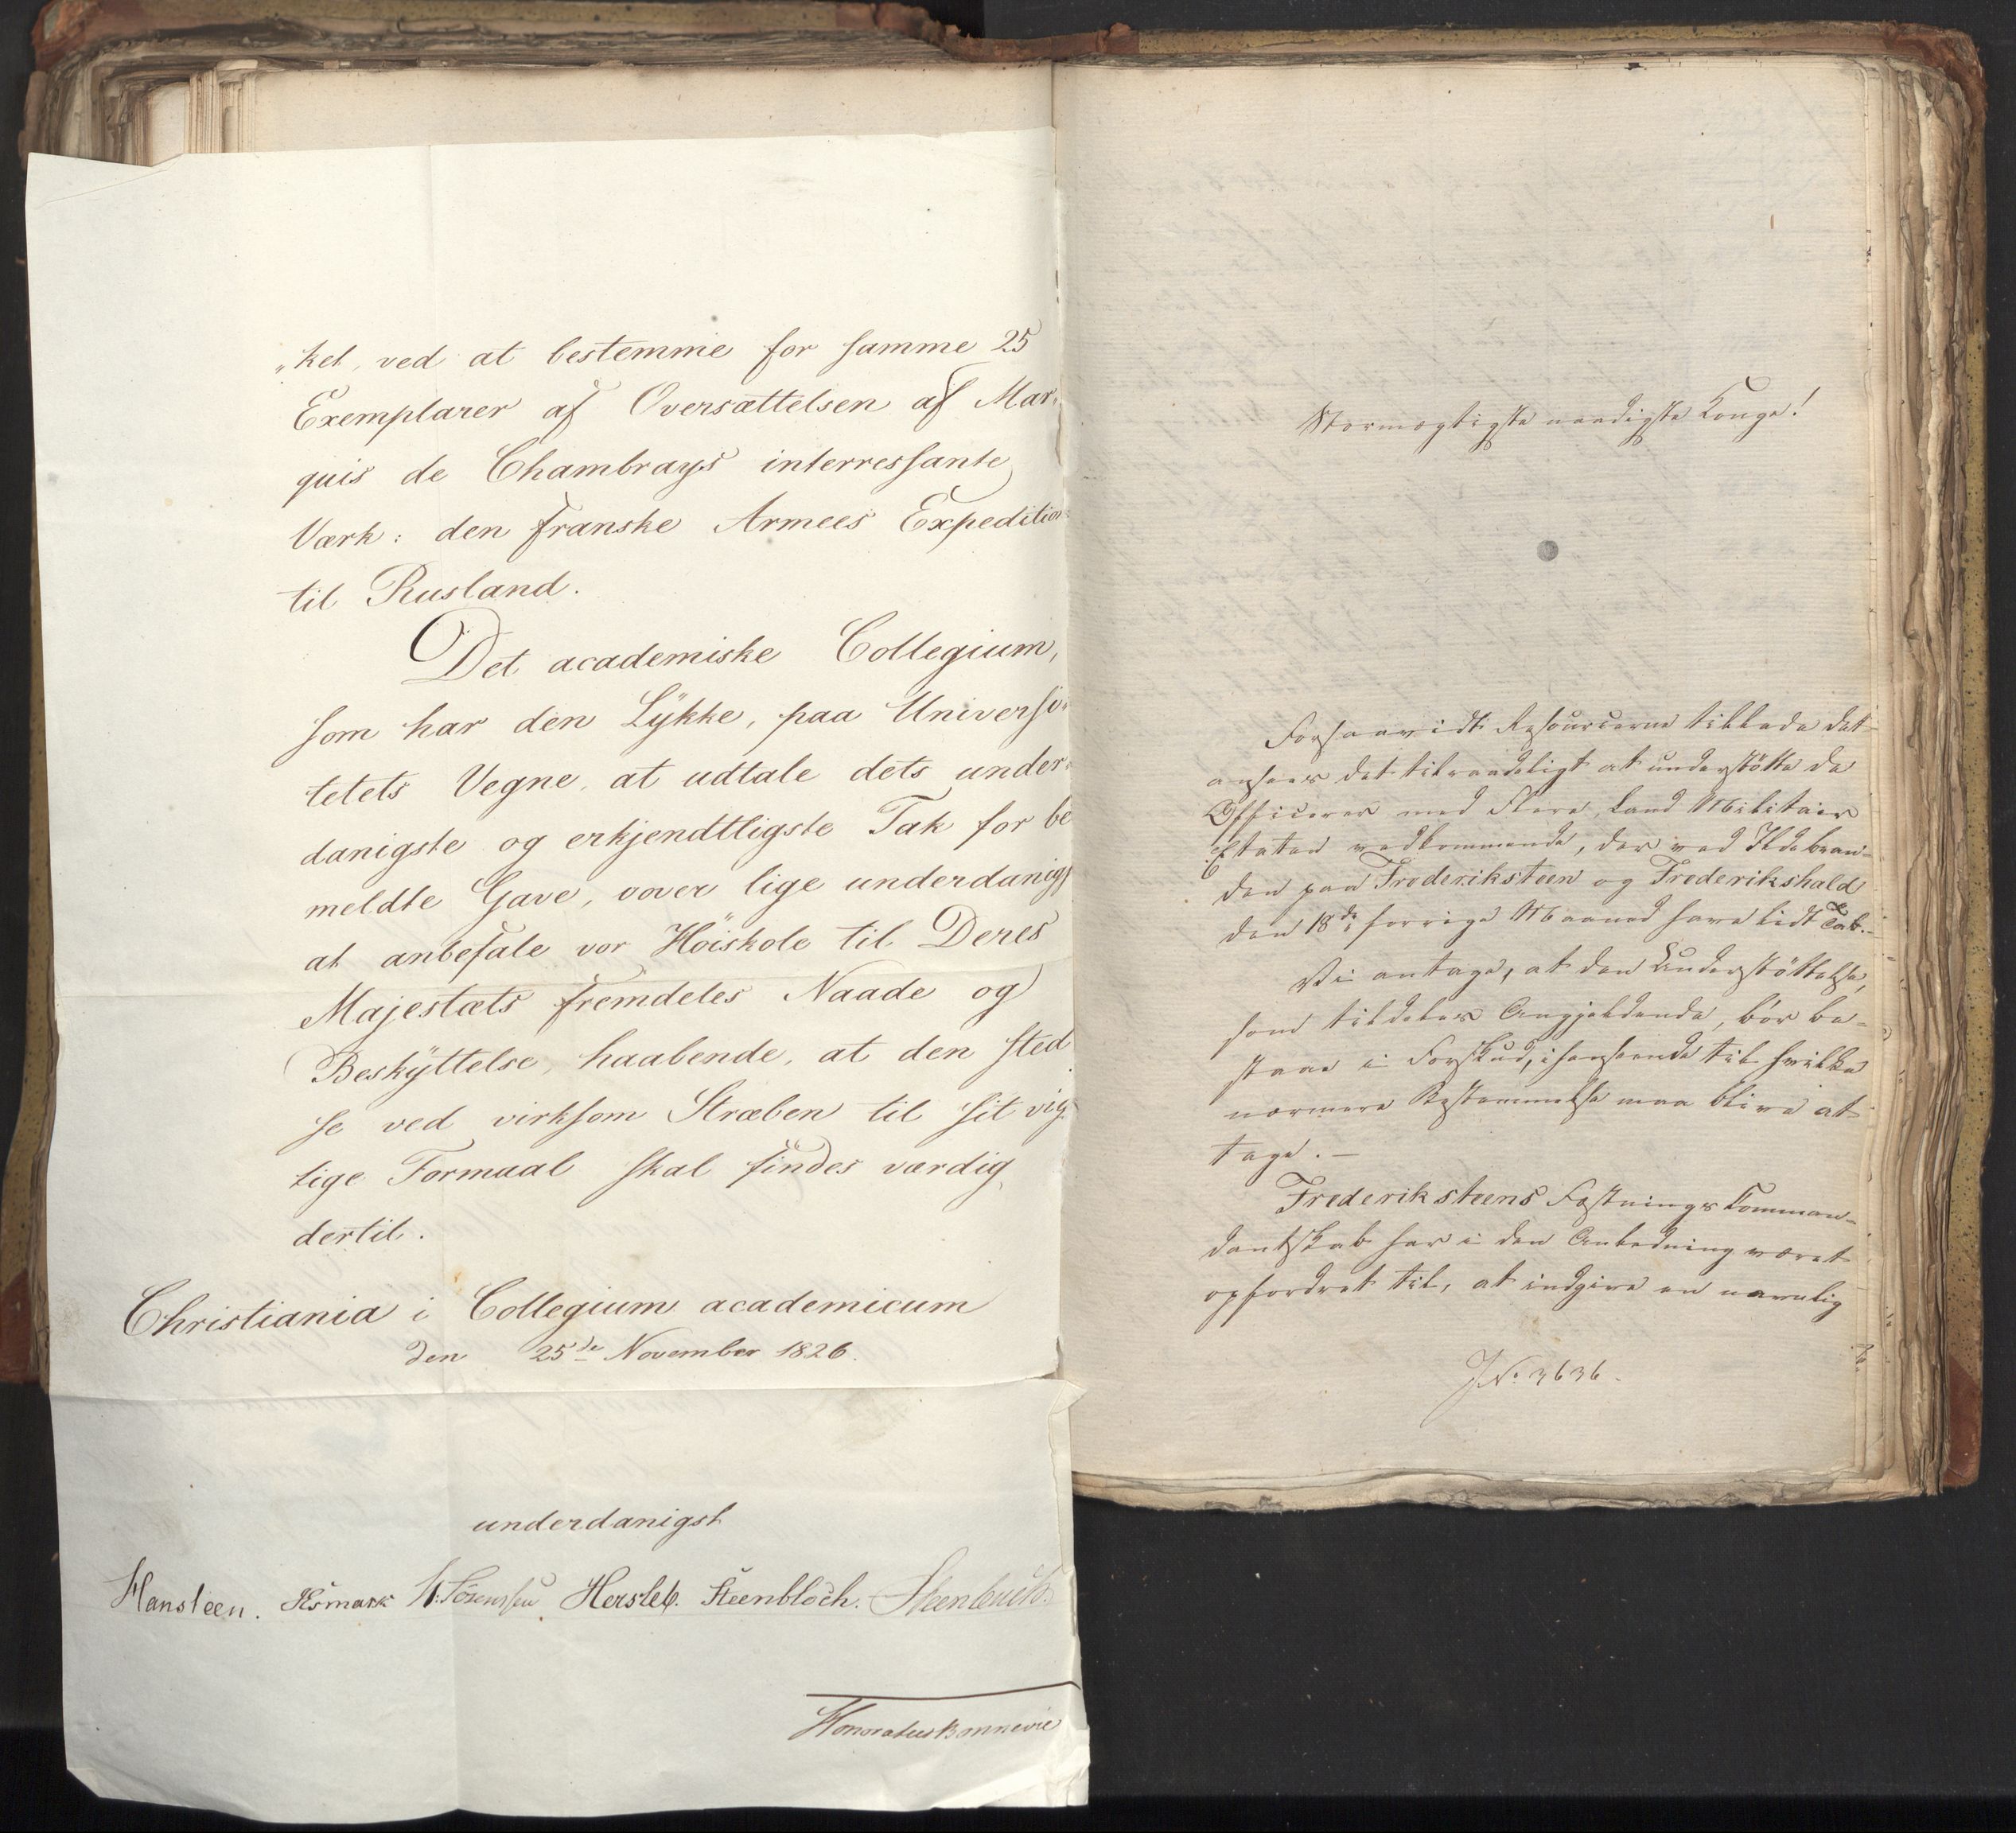 „ket, ved at bestemme for samme 25
Exemplarer af Oversættelsen af Mar„
quis de Chambrays interressante
Værk: den franske Armees Expedition
til Rusland.
Det academiske Collegium,
som har den Lykke, paa Universi„
tetets Vegne, at udtale dets under„
danigste og erkjendtligste Tak for be
meldte Gave, vover lige underdanigst
at anbefale vor Höiskole til Deres
Majestæts fremdeles Naade og
Beskyttelse, haabende, at den sted
se ved virksom Stræben til sit vig
tige Formaal skal findes værdig
dertil.
Christiania i Collegium academicum
den 25de November 1826.
underdanigst
Hansteen. Esmark S: Sörenssen Hersleb. Steenbloch. Steenbuch.
Honoratus Bonnevie
Stormægtigste naadigste Konge!
Forsaavidt Resourcerne tillade det
ansees det tilraadeligt at understötte de
Officerer med Flere, Land Militair
Etaten vedkommende, der ved Ildebran-
den paa Frederiksteen og Frederikshald
den 18de forrige Maaned have lidt Tab.-
Vi antage, at den Understöttelse,
som tildeles Angjeldende, bör be-
staae i Forskud, i henseende til hvilke
nærmere Bestemmelse maa blive at
tage. -
Frederiksteens Fæstnings Komman-
dantskab har i den Anledning været
opfordret til, at indgive en navnlig
J No 3636.